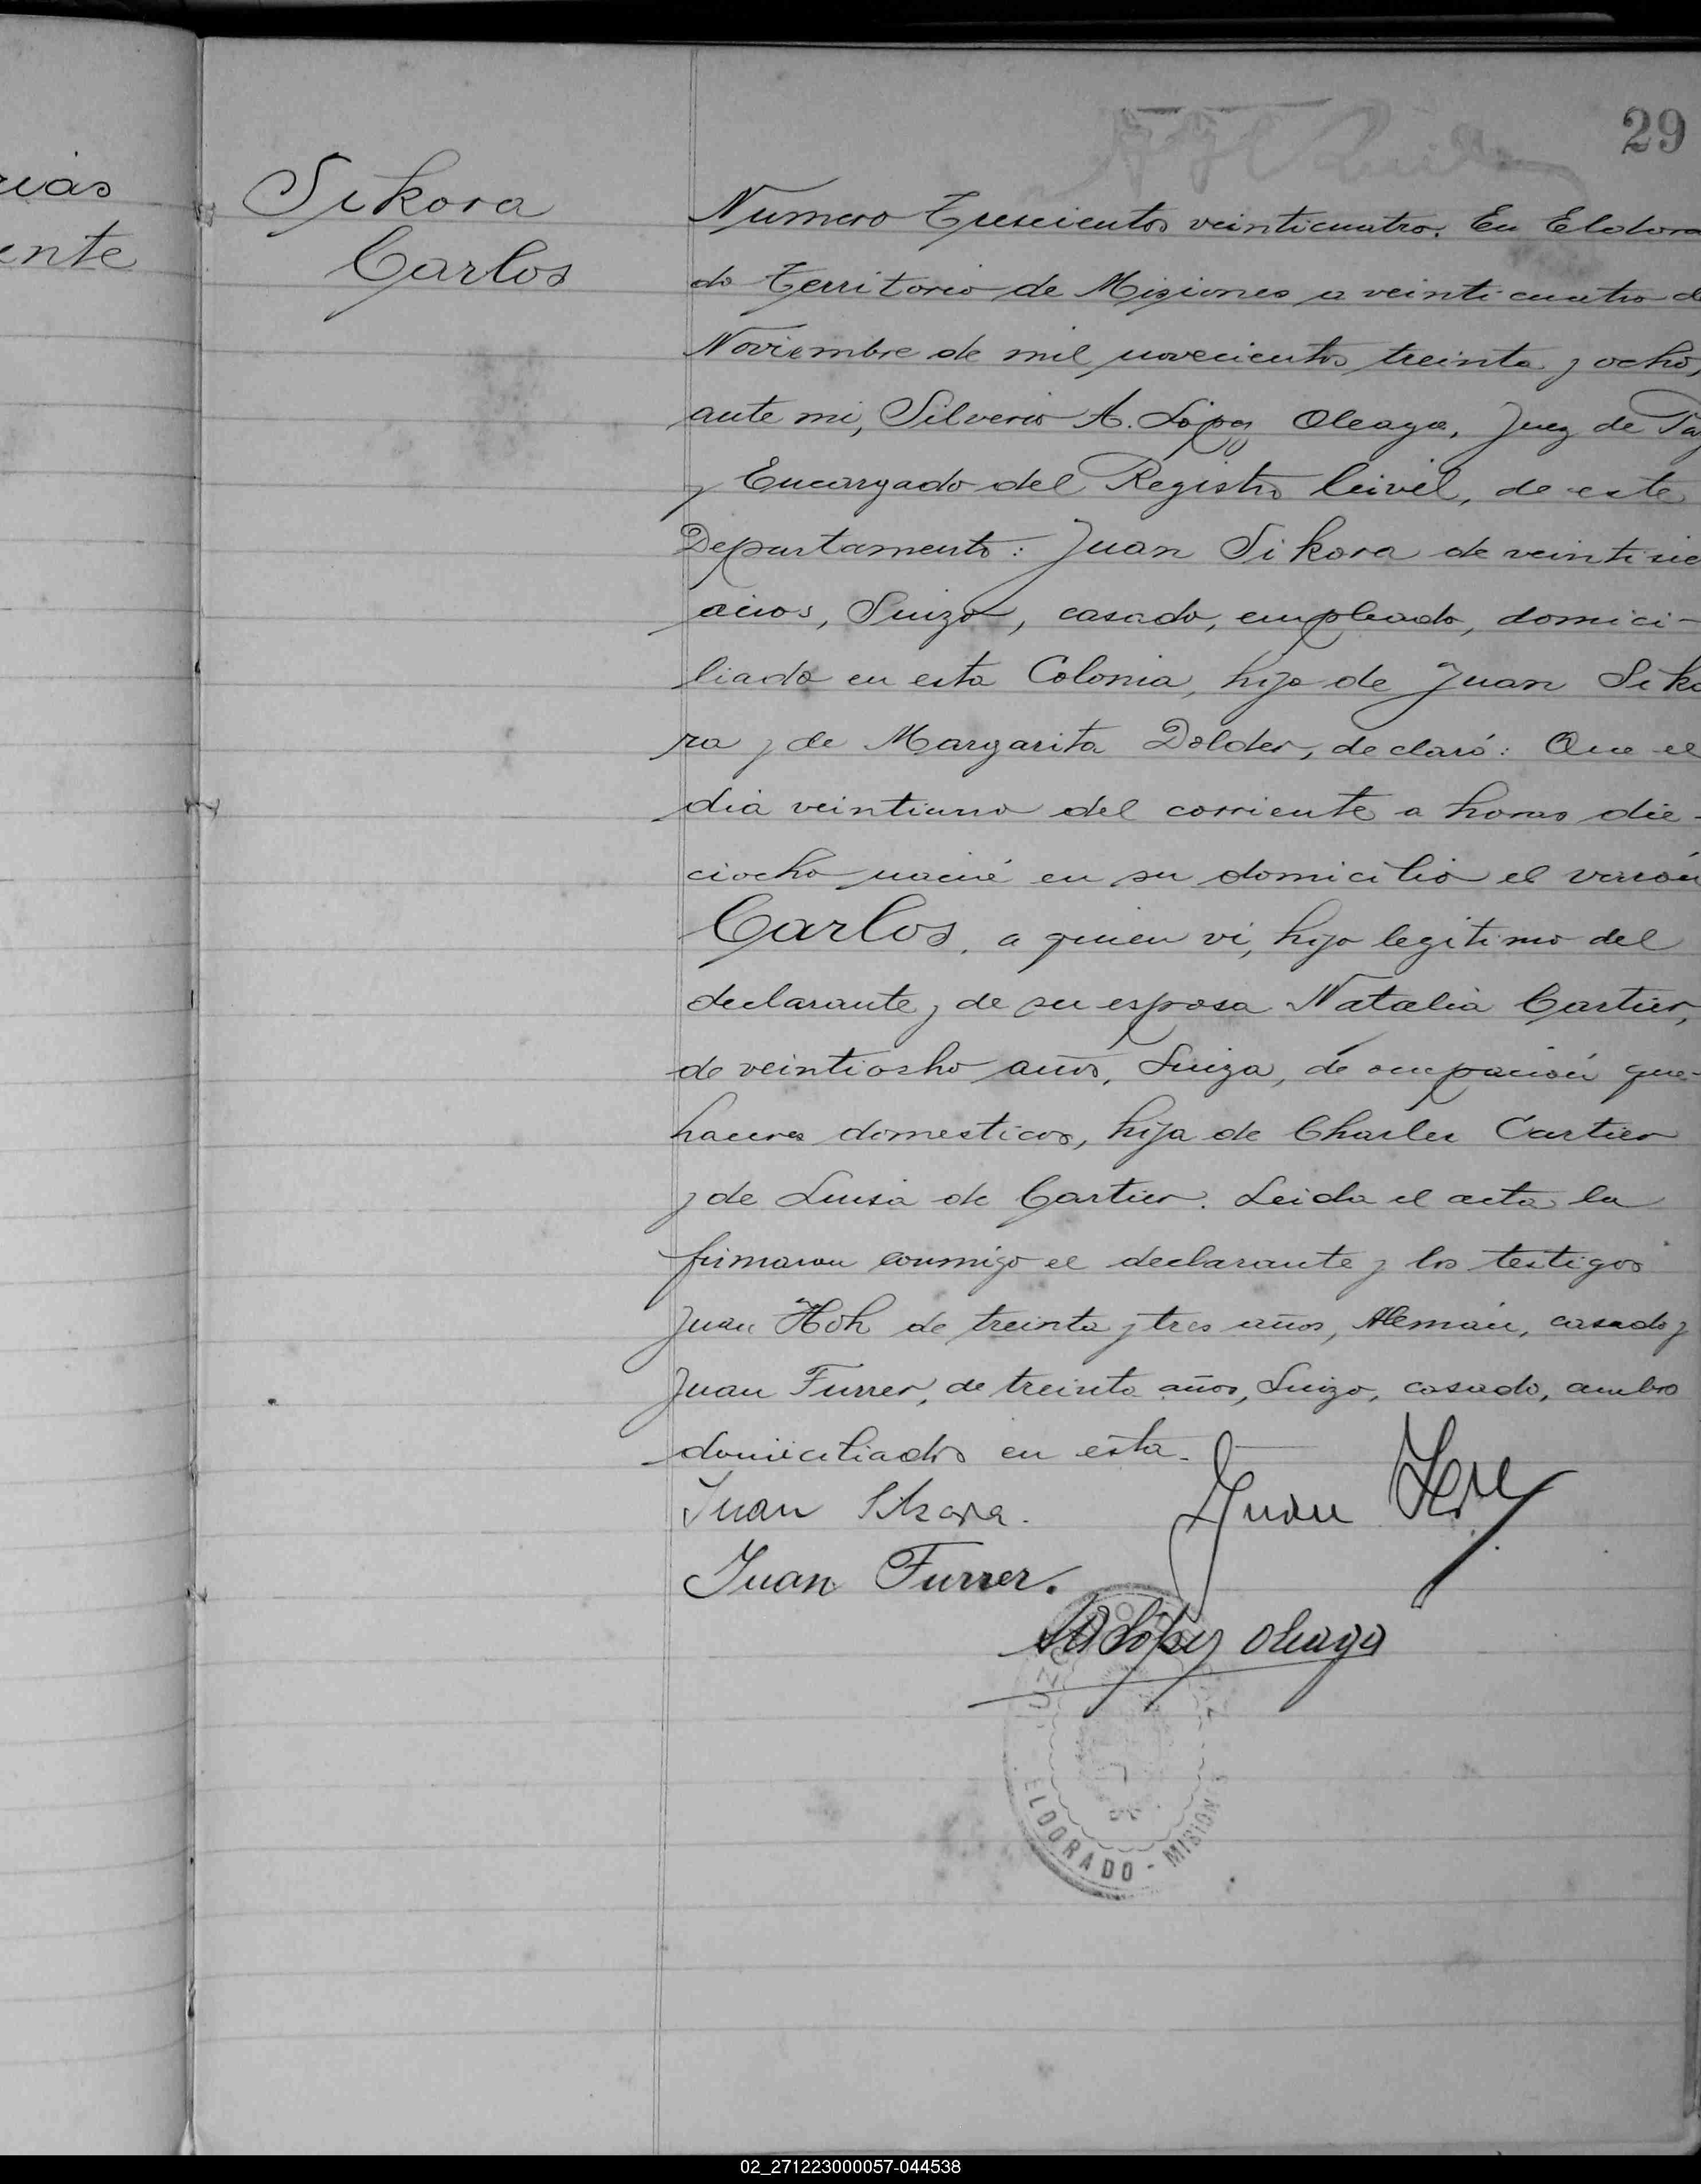 rias
ente
Sikora
Carlos
29
Numero Trescientos veinticuatro. En Eldora
do Territorio de Misiones a veinticuatro d
Noviembre de mil novecientos treinta y ocho,
ante mi, Silverio A. López Oleaga, Juez de Paz
y Encargado del Registro Civil, de este
Departamento: Juan Sikora de veintisie
años, Suizo, casado, empleado, domici-
liado en esta Colonia, hijo de Juan Siko
ra y de Margarita Dolder, declaró: Que el
dia veintiuno del corriente a horas die-
ciocho nació en su domicilio el varón
Carlos, a quien vi, hijo legitimo del
declarante y de su esposa Natalia Cartier,
de veintiocho años, Suiza, de ocupación que-
haceres domesticos, hija de Charles Cartier
y de Luisa de Cartier. Leida el acta la
firmaron conmigo el declarante y los testigos
Juan Hoh de treinta y tres años, Alemán, casado y
Juan Furrer, de treinta años, Suizo, casado, ambo
domiciliados en esta.
Juan Sikora. Juan
Juan Furrer.
SA López Oleaga
ELDORADO - MISION S
02_271223000057-044538